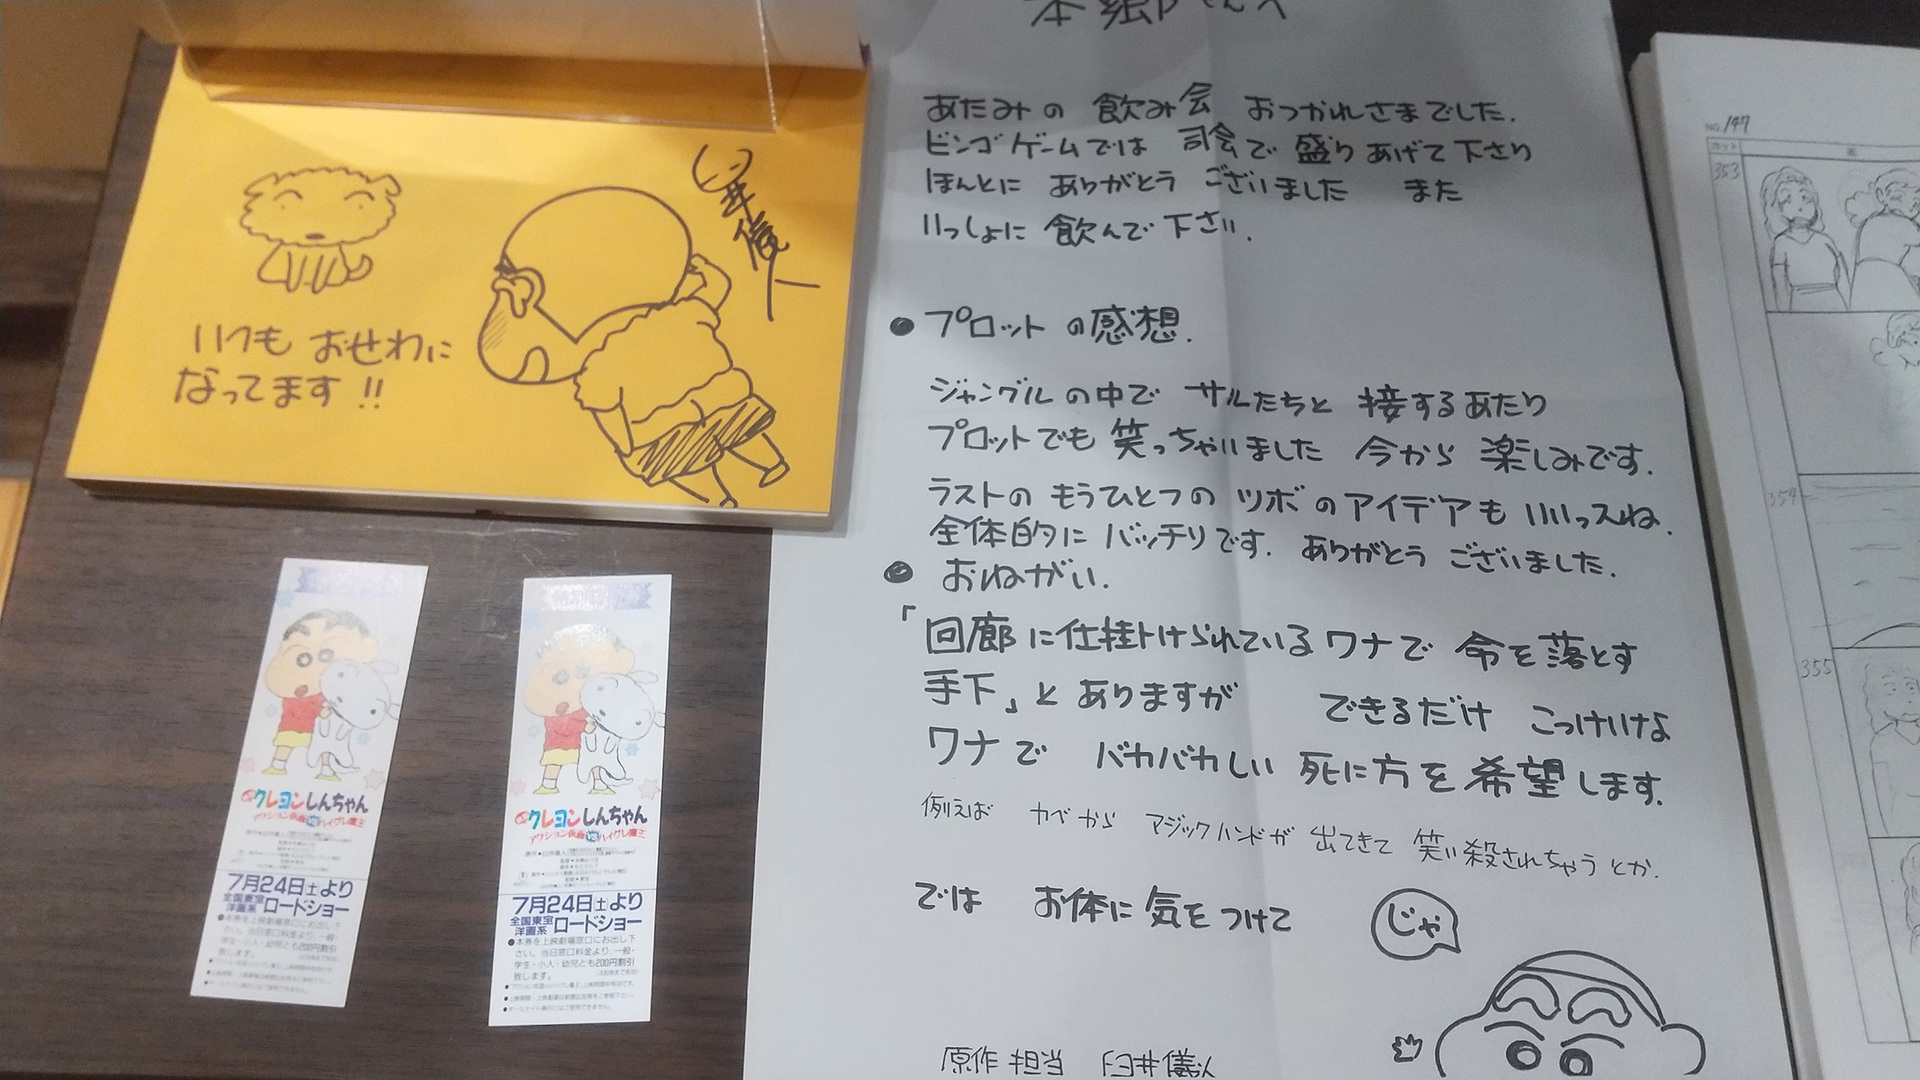 臼井儀人
いつも おせわに
なってます!!
クレヨンしんちゃん
アクション仮面VSハイグレ魔王
7月24日土より
全国東宝
洋画系
ロードショー
●本券を上映劇場窓口にお出し下
さい。当日窓口料金より、一般・
学生・小人・幼児とも200円割引
致します。
クレヨンしんちゃん
アクション仮面VSハイグレ魔王
7月24日土より
全国東宝
洋画系
ロードショー
●本券を上映劇場窓口にお出し下
さい。当日窓口料金より、一般・
学生・小人・幼児とも200円割引
致します。
本郷さんへ
あたみの 飲み会 おつかれさまでした.
ビンゴゲームでは 司会で 盛りあげて下さり
ほんとに ありがとう ございました また
いっしょに 飲んで下さい.
● プロットの感想.
ジャングルの中で サルたちと 接するあたり
プロットでも 笑っちゃいました 今から 楽しみです.
ラストの もうひとつの ツボのアイデアも いいっスね.
全体的に バッチリです. ありがとう ございました.
● おねがい.
「回廊に仕掛けられているワナで 命を落とす
手下」と ありますが できるだけ こっけいな
ワナで バカバカしい 死に方を 希望します.
例えば カベから マジックハンドが 出てきて 笑い殺されちゃう とか.
では お体に 気をつけて
じゃ
原作担当 臼井儀人
NO. 147
カット
画
353
354
355